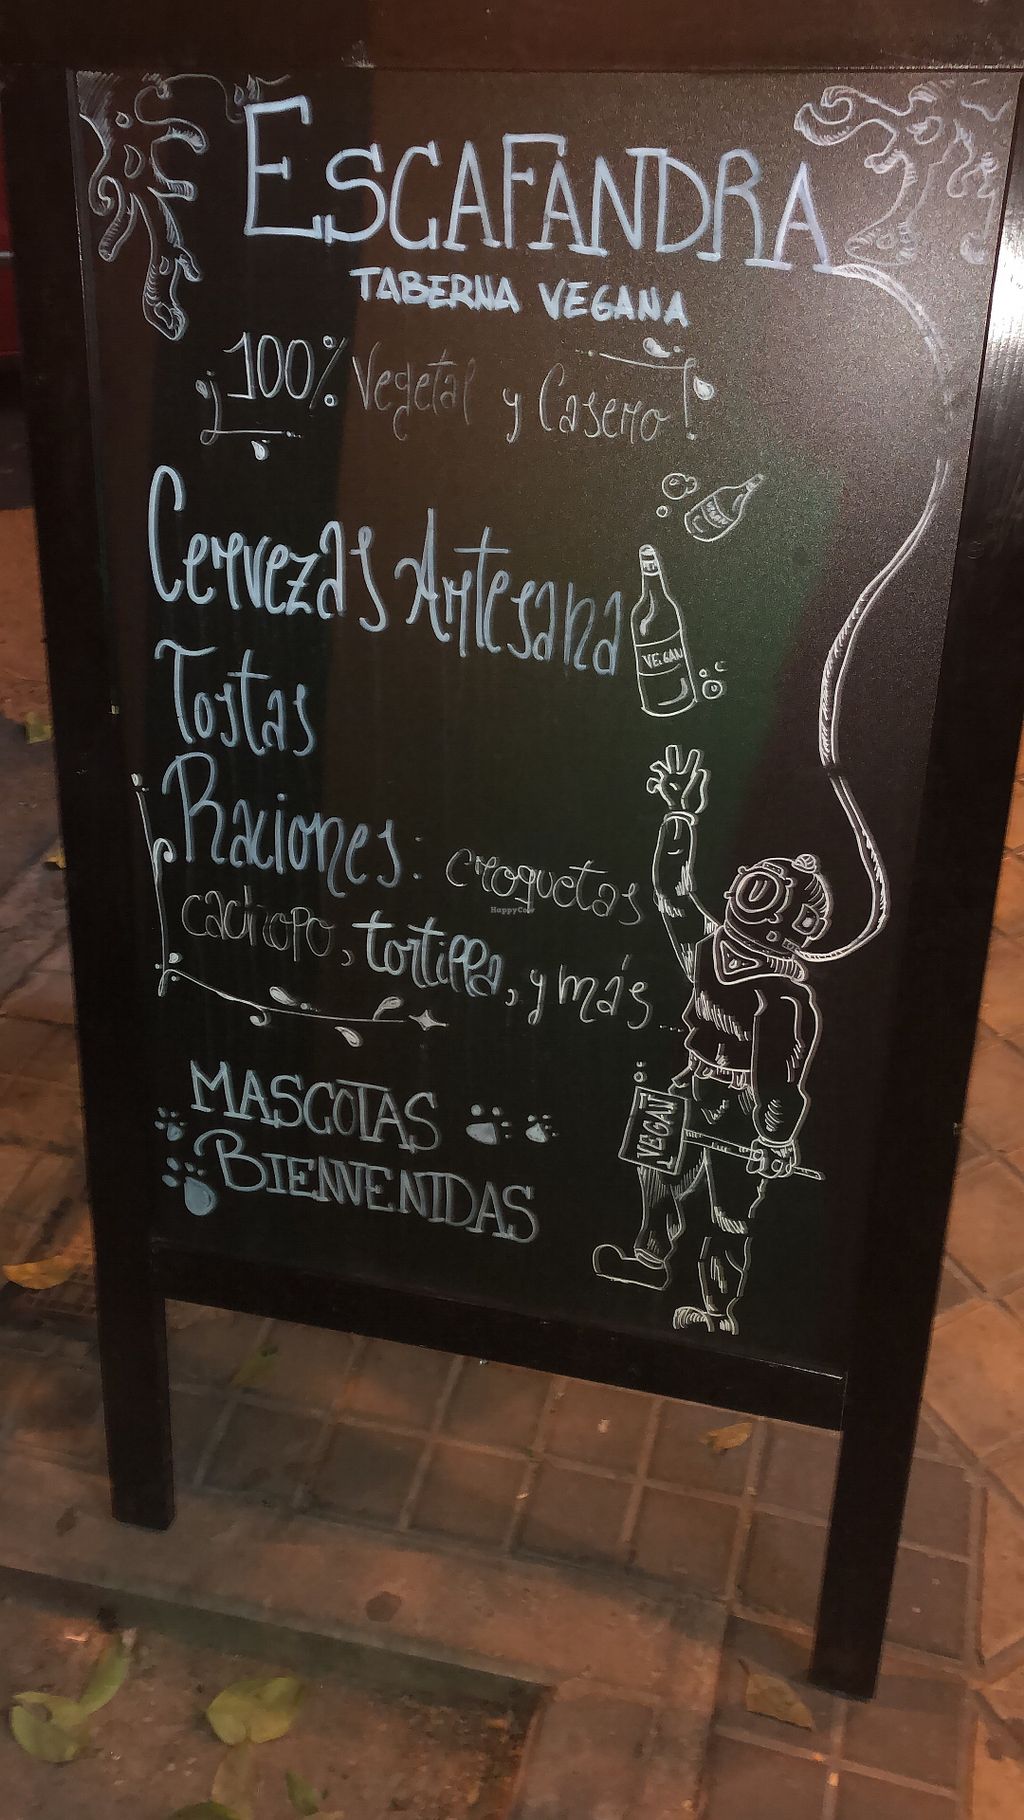 ESCAFANDRA
TABERNA VEGANA
¡100% Vegetal y Casero!
Cervezas Artesana
VEGAN
Tostas
Raciones: croquetas
cachopo, tortilla, y más...
HappyCow
VEGAN
MASCOTAS
BIENVENIDAS